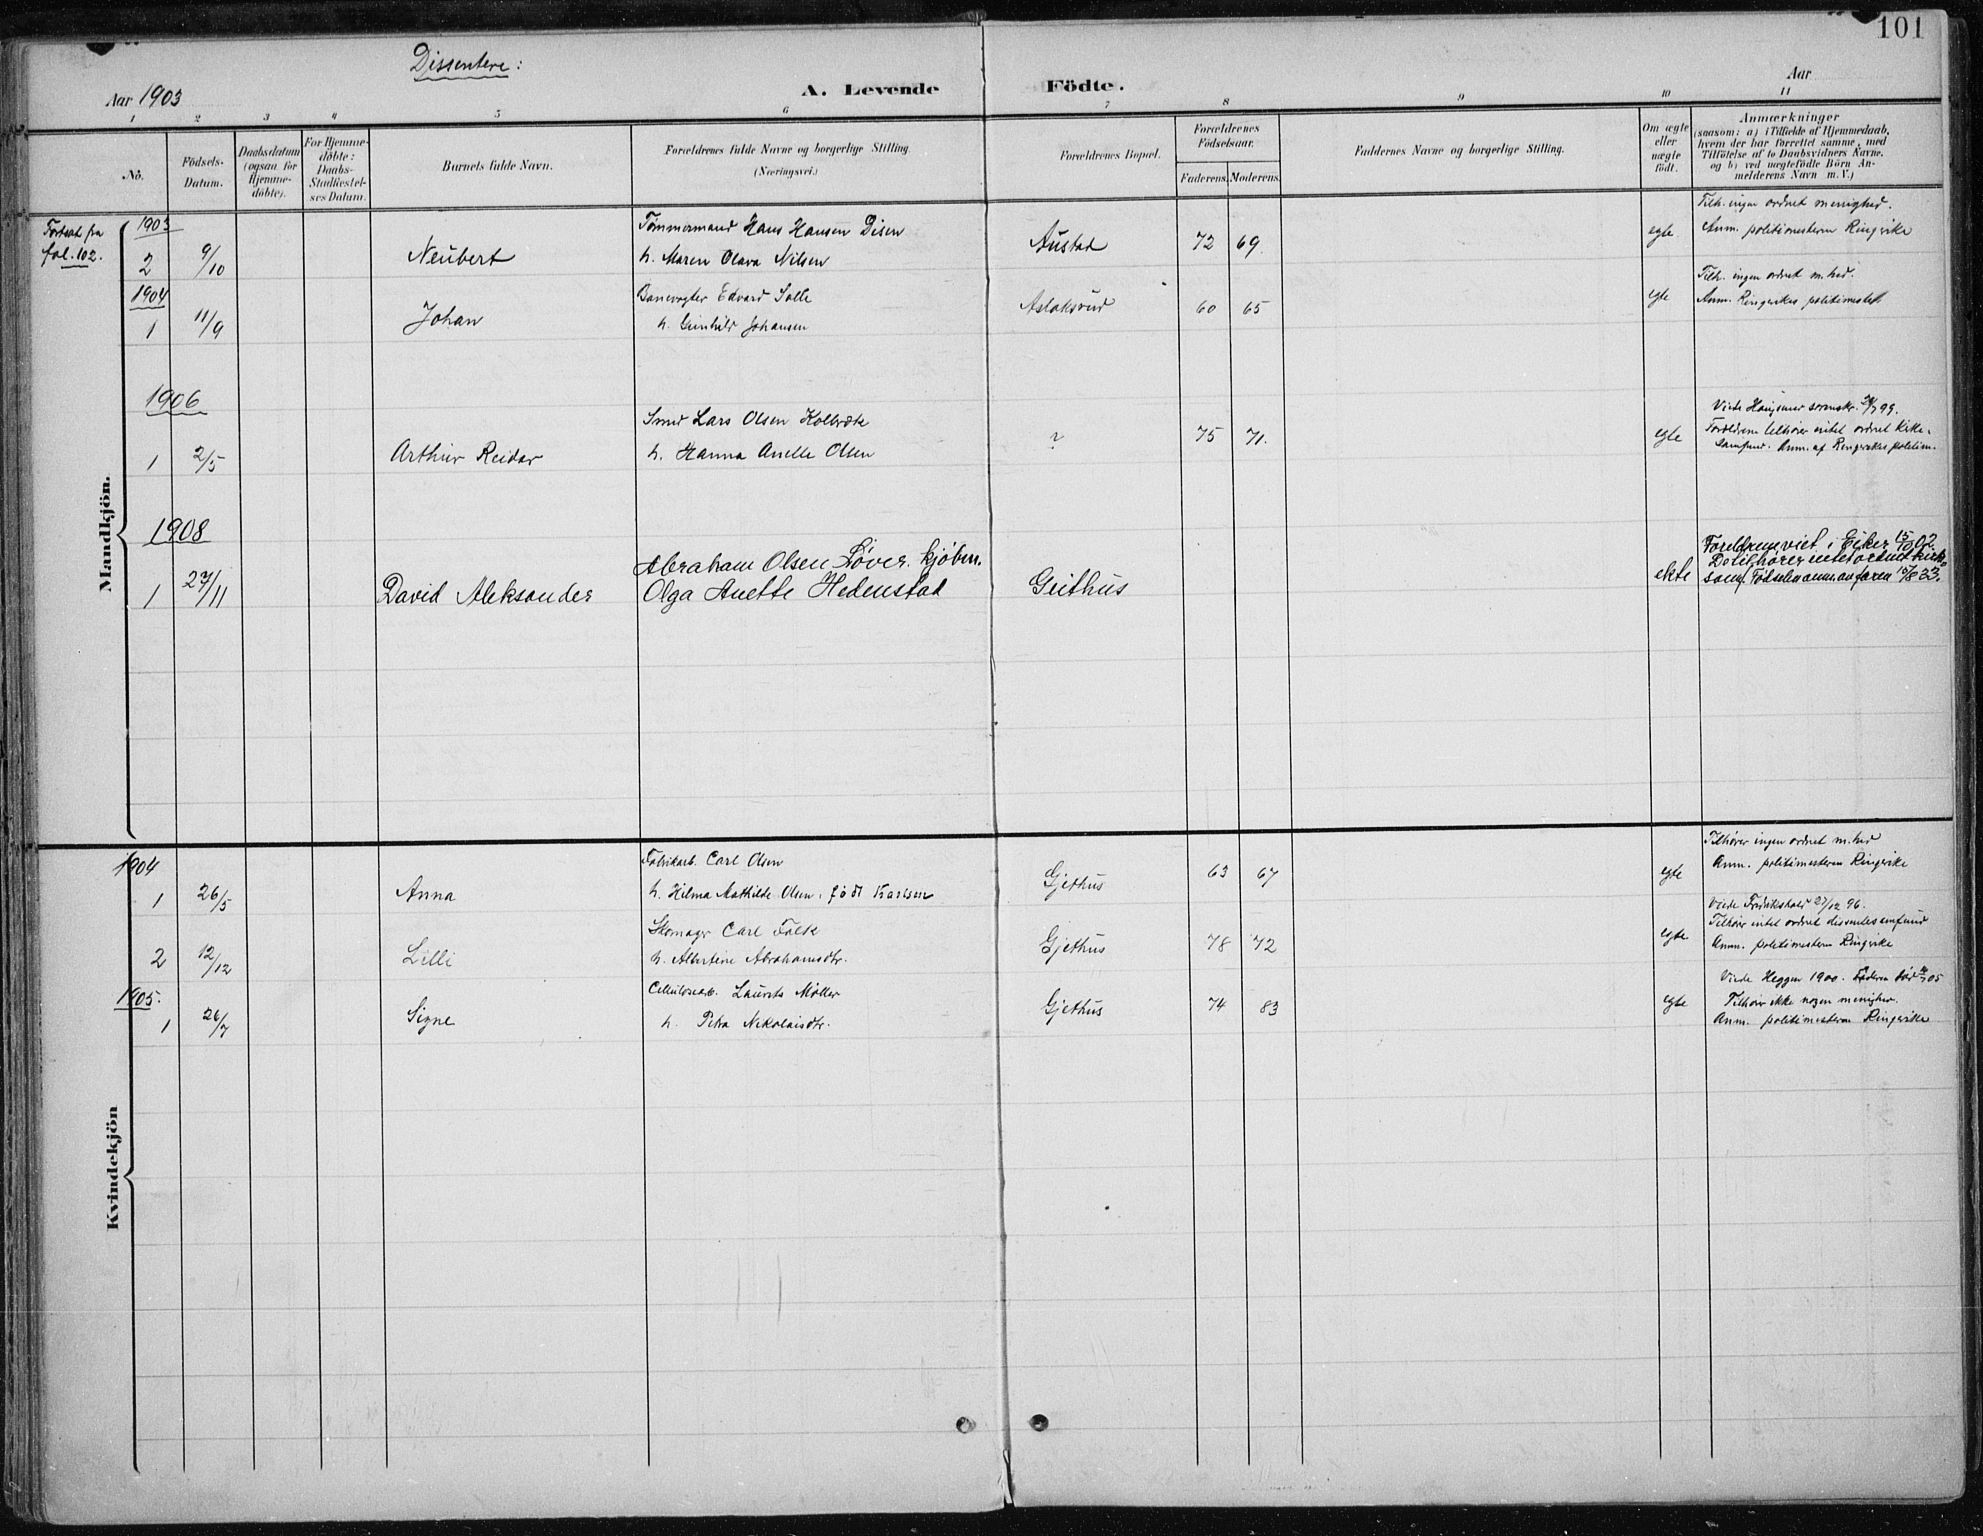 101
Dissentere:
Aar 1903
A. Levende Födte.
Aar
1 2 3 4 5 6 7 8 9 10 11
No.
Födsels-
Datum.
Daabsdatum
(ogsaa for
Hjemme-
döbte).
For Hjemme-
döbte:
Daabs-
Stadfæstel-
ses Datum.
Barnets fulde Navn.
Forældrenes fulde Navne og borgerlige Stilling
(Næringsvei.)
Forældrenes Bopæl.
Forældrenes
Födselsaar.
Faderens. Moderens.
Faddernes Navne og borgerlige Stilling.
Om ægte
eller
uægte
födt.
Anmærkninger
(saasom: a) i Tilfælde af Hjemmedaab,
hvem der har forrettet samme, med
Tilföielse af to Daabsvidners Navne,
og b) ved uægtefödte Börn An-
melderens Navn m. V.)
Mandkjön.
Fortsat fra
fol. 102.
1903
2 9/10 Neubert
Tømmermand Hans Hansen Disen
h. Maren Olava Nilsen
Austad 72 69. egte
Tilh. ingen ordnet menighed.
Anm. politimesteren Ringerike
1904
1 11/9 Johan
Banevogter Edvard Solle
h. Gunhild Johansen
Aslaksrud 60 65 egte
Tilh. ingen ordnet m.hed.
Anm. Ringerikes politimester
1906
1 2/5 Arthur Reidar
Smed Lars Olsen
h. Hanna Anette Olsen
? 75 71. egte
Viede Haugsund sorenskr. 99.
Forældrene tilhører intet ordnet kirke-
samfund. Anm. af Ringerikes politim.
1908
1 27/11 David Aleksander
Abraham Olsen Løver. kjøbm.
Olga Anette Hedenstad
Geithus ekte
Foreldrene viet i Eiker 02.
De tilhører intet ordnet kirke
samf. Fødselen anm. av faren 15/8 33.
Kvindekjön
1904
1 26/5 Anna
Fabrikarb. Carl Olsen
h. Hilma Mathilde Olsen, født Karlsen
Gjethus 63 67 egte
Tilhører ingen ordnet m.hed
Anm. politimesteren Ringerike
2 12/12 Lilli
Skomager Carl Falk
h. Albertine Abrahamsdtr.
Gjethus 78 72 egte
Viede Fredrikshald 27/12 96.
Tilhører intet ordnet dissentersamfund
Anm. politimesteren Ringerike
1905.
1 26/7 Signe
Cellulosearb. Laurits Møller
h. Petra Nikolaisdtr.
Gjethus 74 83 egte
Viede Heggen 1900. Faderen død 05
Tilhører ikke nogen menighed.
Anm. politimesteren Ringerike